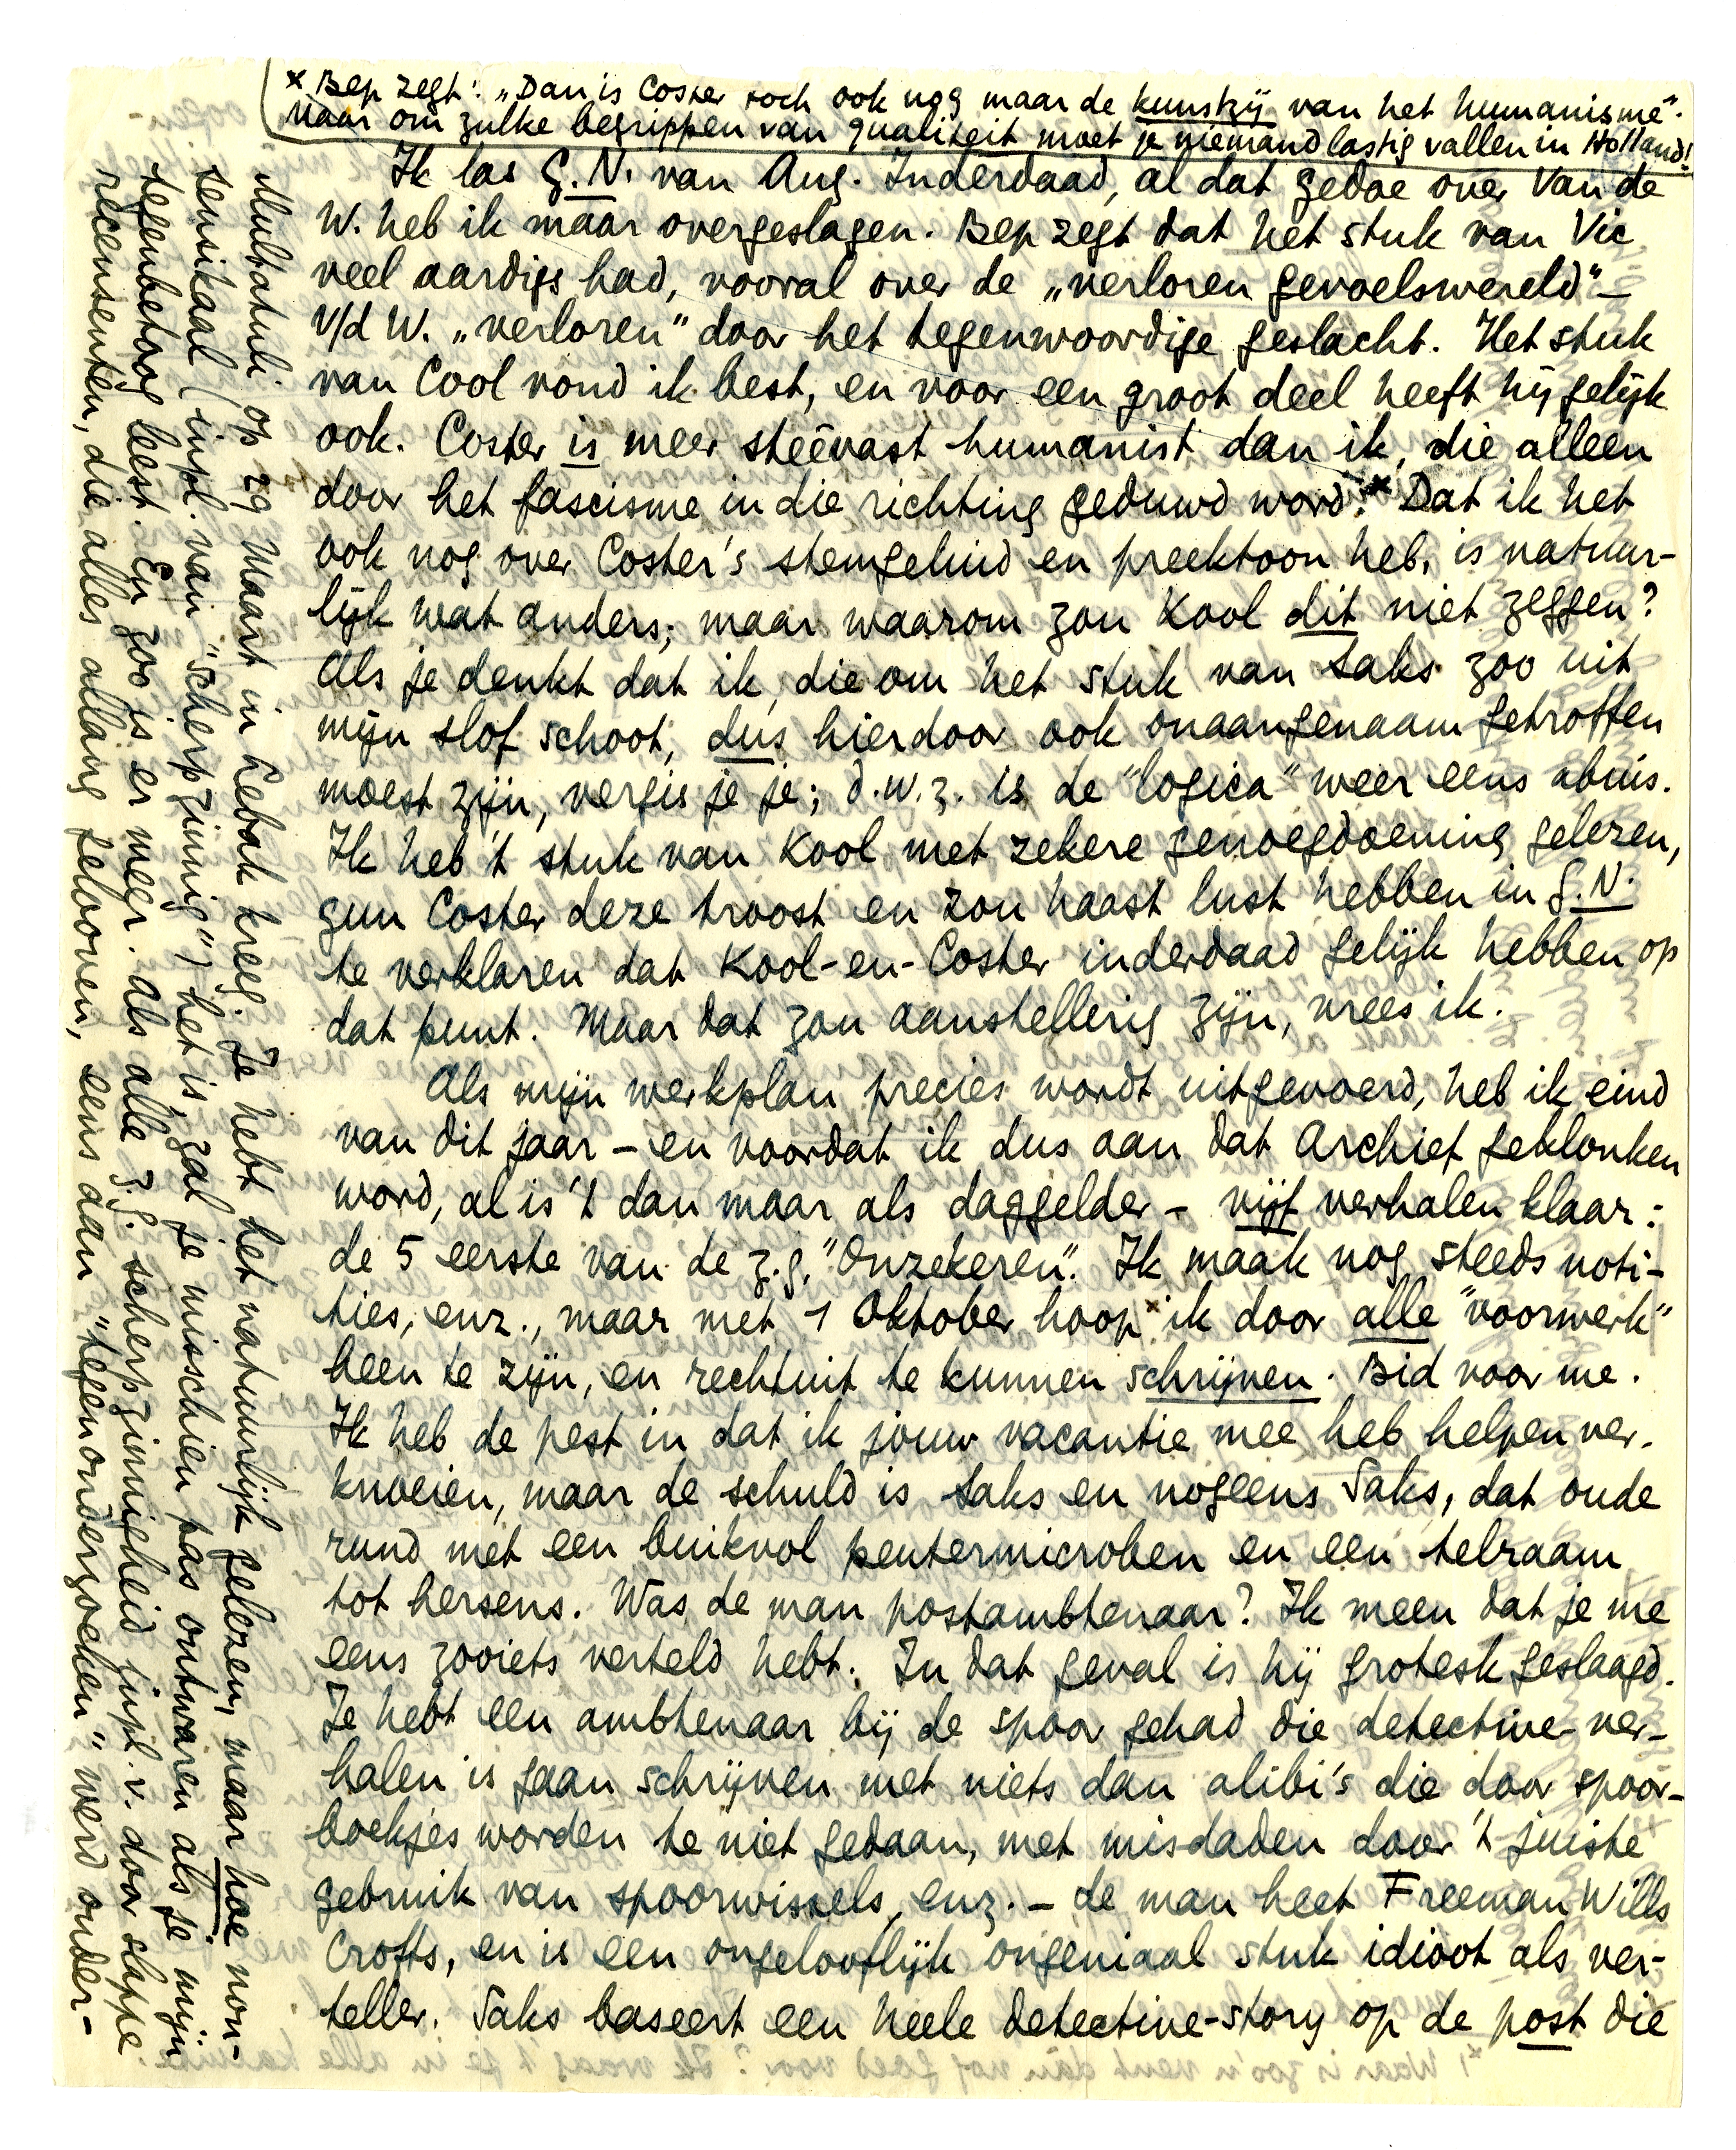 * Bep zegt: „Dan is Coster toch ook nog maar de kunstzij van het humanisme".
Maar om zulke begrippen van qualiteit moet je niemand lastig vallen in Holland!
Ik las G.N. van Aug. Inderdaad, al dat gedoe over Van de
W. heb ik maar overgeslagen. Bep zegt dat het stuk van Vic
veel aardigs had, vooral over de „verloren gevoelswereld" –
v/d W. „verloren" door het tegenwoordige geslacht. Het stuk
van Cool vond ik best, en voor een groot deel heeft hij gelijk
ook. Coster is meer steevast humanist dan ik, die alleen
door het fascisme in die richting geduwd word.* Dat ik het
ook nog over Coster's stemgeluid en preektoon heb, is natuur-
lijk wat anders; maar waarom zou Kool dit niet zeggen?
Als je denkt dat ik, die om het stuk van Saks zoo uit
mijn slof schoot, dus hierdoor ook onaangenaam getroffen
moest zijn, vergis je je; d.w.z. is de "logica" weer eens abuis.
Ik heb 't stuk van Kool met zekere genoegdoening gelezen,
gun Coster deze troost en zou haast lust hebben in G.N.
te verklaren dat Kool-en-Coster inderdaad gelijk hebben op
dat punt. Maar dat zou aanstellerig zijn, vrees ik.
Als mijn werkplan precies wordt uitgevoerd, heb ik eind
van dit jaar – en voordat ik dus aan dat Archief geklonken
word, al is 't dan maar als daggelder – vijf verhalen klaar:
de 5 eerste van de z.g. "Onzekeren". Ik maak nog steeds noti-
ties, enz., maar met 1 Oktober hoop * ik door alle "voorwerk"
heen te zijn, en rechtuit te kunnen schrijven. Bid voor me.
Ik heb de pest in dat ik jouw vacantie mee heb helpen ver-
knoeien, maar de schuld is Saks en nogeens Saks, dat oude
rund met een buikvol peutermicroben en een telraam
tot hersens. Was de man postambtenaar? Ik meen dat je me
eens zooiets verteld hebt. In dat geval is hij grotesk geslaagd.
Je hebt een ambtenaar bij de spoor gehad die detective-ver-
halen is gaan schrijven met niets dan alibi's die door spoor-
boekjes worden te niet gedaan, met misdaden door 't juiste
gebruik van spoorwissels, enz. – de man heet Freeman Wills
Crofts, en is een ongelooflijk ongeniaal stuk idioot als ver-
teller. Saks baseert een heele detective-story op de post die
Multatuli op 29 Maart in Lebak kreeg. Je hebt het natuurlijk gelezen, maar hoe non-
sensikaal (inpl. van "scherpzinnig") het is, zal je misschien pas ontwaren als je mijn
tegenbetoog leest. En zoo is er meer. Als alle z.g. scherpzinnigheid inpl. v. door slappe
recensenten, die alles allang gelooven, eens dan "tegenonderzoeken" werd onder-